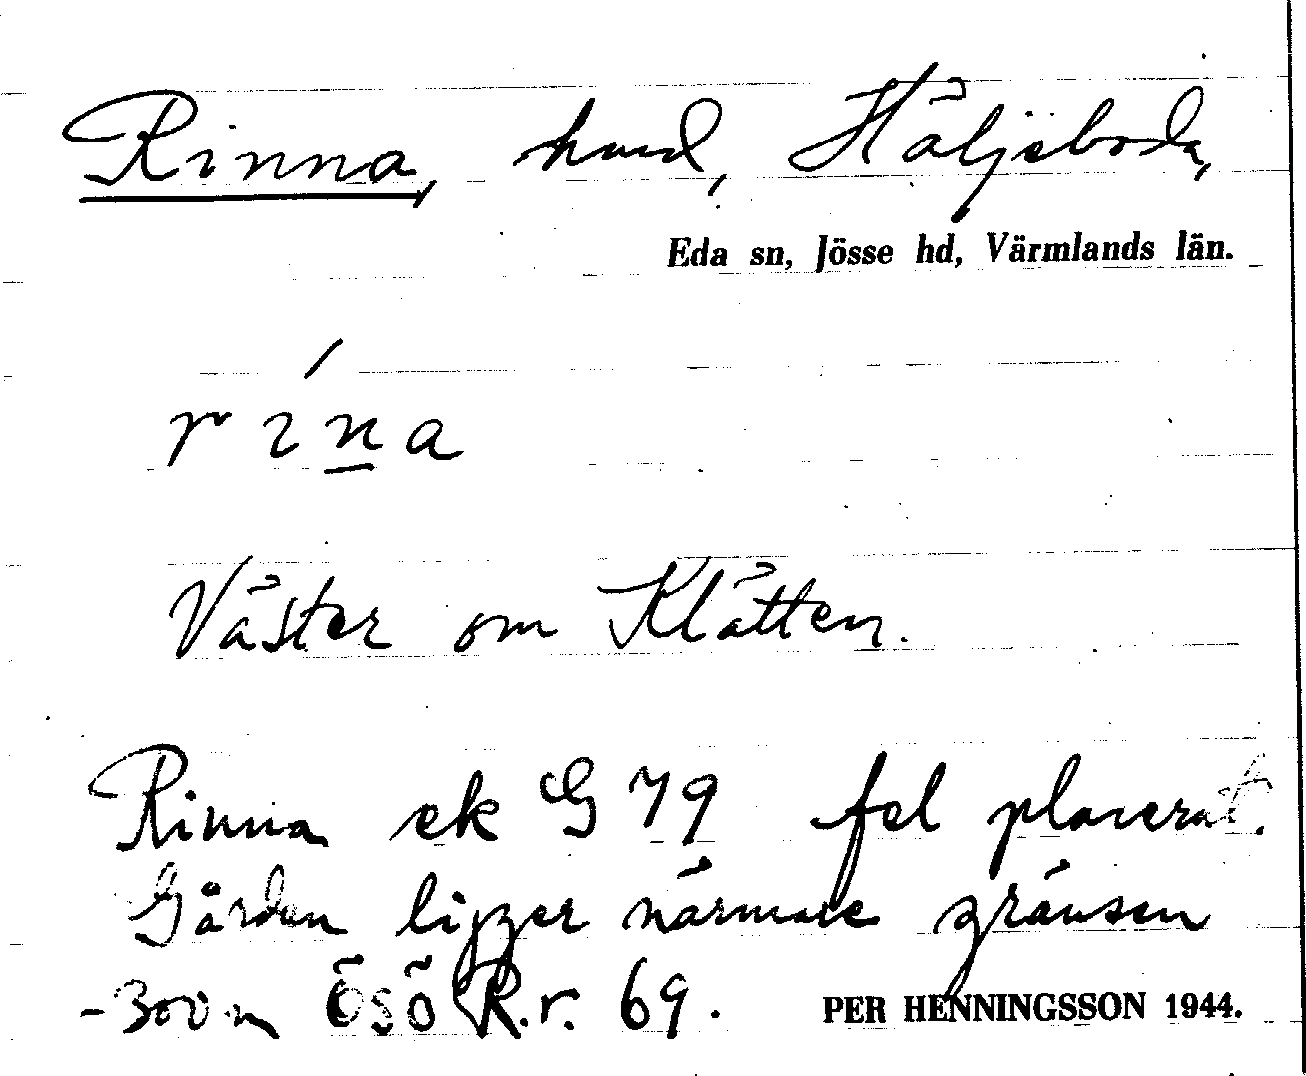 Rinna, hmd, Häljeboda,
Eda sn, Jösse hd, Värmlands län.
rı́n̲a
Väster om Klätten.
Rinna ek G 79 fel placerat.
Gården ligger närmare gränsen
- 300 m ÖSÖ R.r. 69.
PER HENNINGSSON 1944.